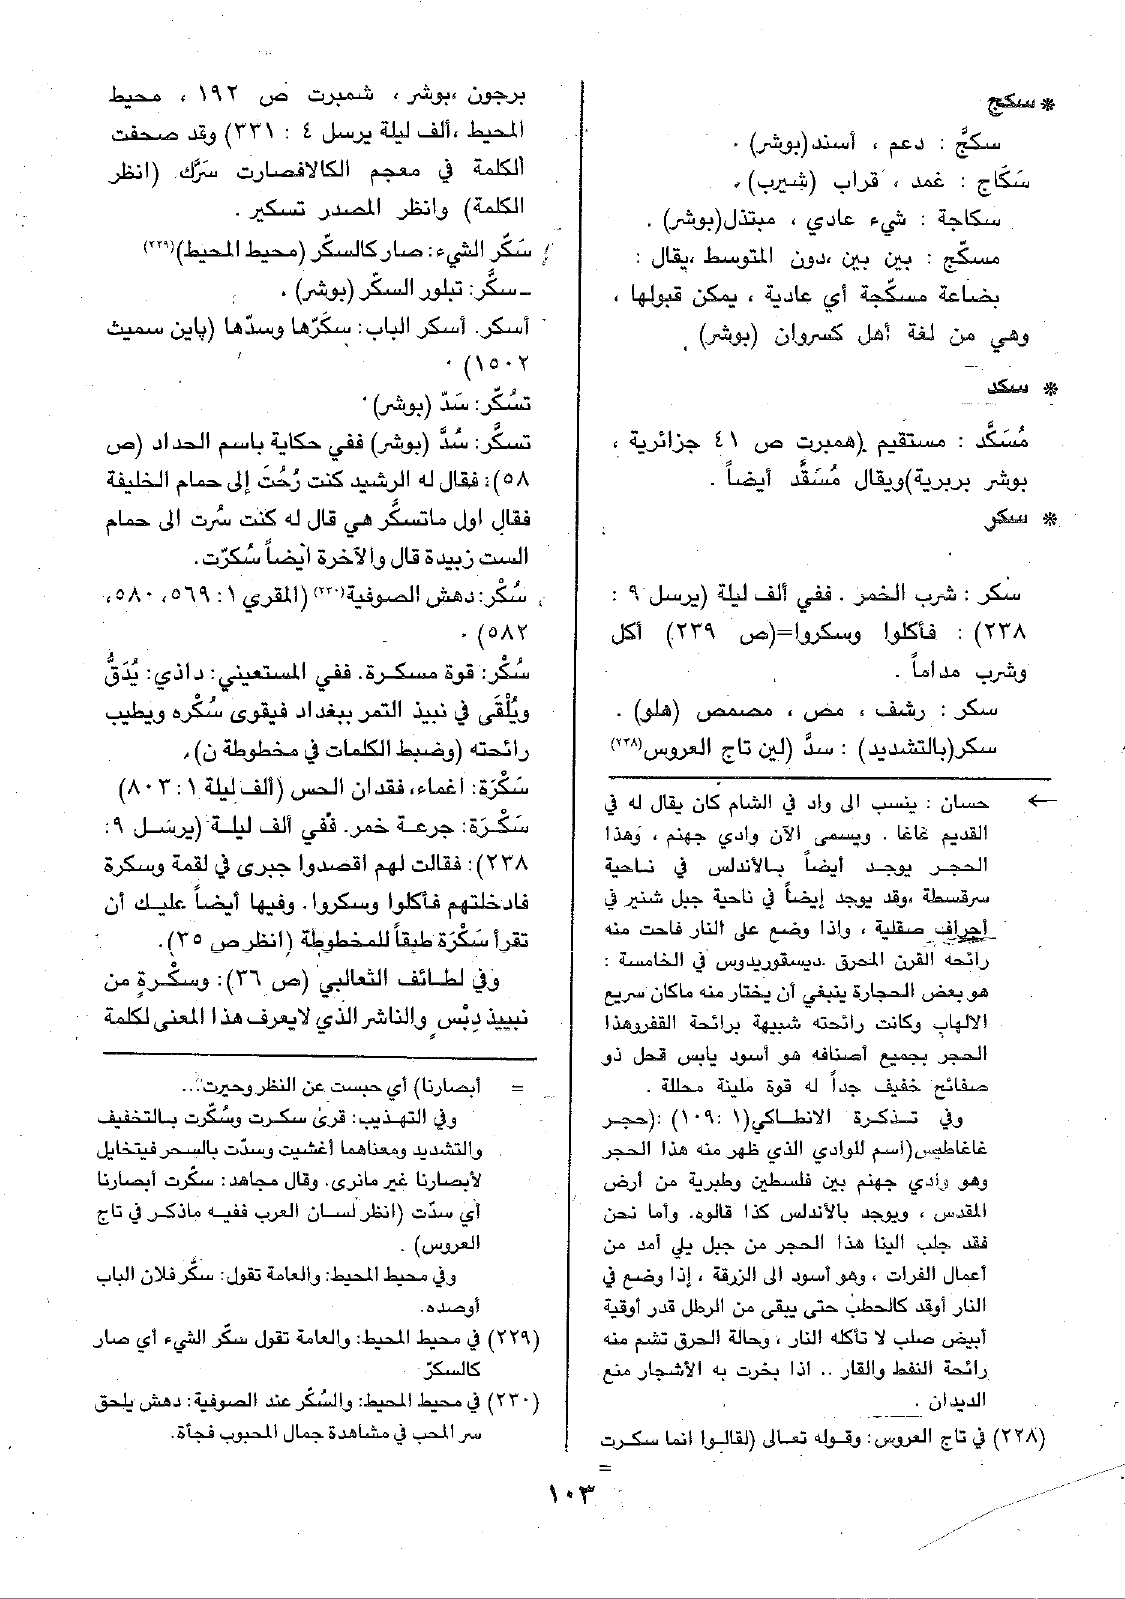 * سكج
سكجَّ : دعم ، أسند (بوشر) .
سَكّاج : غمد ، قراب (شيرب) .
سكاجة : شيء عادي ، مبتذل (بوشر) .
مسكّج : بين بين ، دون المتوسط ، يقال :
بضاعة مسكّجة أي عادية ، يمكن قبولها ،
وهي من لغة أهل كسروان (بوشر) .
* سكد
مُسَكَّد : مستقيم (همبرت ص ٤١ جزائرية ،
بوشر بربرية) ويقال مُسَقَّد أيضاً .
* سكر
سكر : شرب الخمر . ففي ألف ليلة (يرسل ٩ :
٢٣٨) : فأكلوا وسكروا=(ص ٢٣٩) أكل
وشرب مداماً .
سكر : رشف ، مص ، مصمص (هلو) .
سكر (بالتشديد) : سدَّ (لين تاج العروس (٢٢٨)
← حسان : ينسب الى واد في الشام كان يقال له في
القديم غاغا . ويسمى الآن وادي جهنم ، وهذا
الحجر يوجد أيضاً بالأندلس في ناحية
سرقسطة ، وقد يوجد إيضاً في ناحية جبل شنير في
اجراف صقلية ، واذا وضع على النار فاحت منه
رائحه القرن المحرق .ديسقوريدوس في الخامسة :
هو بعض الحجارة ينبغي أن يختار منه ماكان سريع
الالهاب وكانت رائحته شبيهة برائحة القفروهذا
الحجر بجميع أصنافه هو أسود يابس قحل ذو
صفائح خفيف جداً له قوة ملينة محللة .
وفي تذكرة الانطاكي (١ :١٠٩) : (حجر
غاغاطيس (اسم للوادي الذي ظهر منه هذا الحجر
وهو وادي جهنم بين فلسطين وطبرية من أرض
المقدس ، ويوجد بالأندلس كذا قالوه. وأما نحن
فقد جلب الينا هذا الحجر من جبل يلي آمد من
أعمال الفرات ، وهو أسود الى الزرقة ، إذا وضع في
النار أوقد كالحطب حتى يبقى من الرطل قدر أوقية
أبيض صلب لا تأكله النار ، وحالة الحرق تشم منه
رائحة النفط والقار .. اذا بخرت به الأشجار منع
الديدان .
(٢٢٨) في تاج العروس: وقوله تعالى (لقالوا انما سكرت
=
برجون ،بوشر ، شمبرت ص ١٩٢ ، محيط
المحيط ، ألف ليلة يرسل ٤ : ٣٣١) وقد صحفت
الكلمة في معجم الكالافصارت سَرَّك. (انظر
الكلمة) وانظر المصدر تسكير .
سَكّر الشيء: صار كالسكّر (محيط المحيط) (٢٢٩)
ـ سكّر: تبلور السكّر (بوشر) .
أسكر. أسكر الباب: سكَرّها وسدّها (پاين سميث
١٥٠٢) .
تسُكّر: سَدّ (بوشر) .
تسكَّر: سُدَّ (بوشر) ففي حكاية باسم الحداد (ص
٥٨): فقال له الرشيد كنت رُحْتَ إلى حمام الخليفة
فقال اول ماتسكَّر هي قال له كنت سُرت الى حمام
الست زبيدة قال والآخرة أيضاً سُكرّت.
سُكْر: دهش الصوفية (٢٣٠) (المقري ١: ٥٦٩، ٥٨٠،
٥٨٢) .
سُكْر: قوة مسكرة. ففي المستعيني: داذي: يُدَقُّ
ويُلْقَى في نبيذ التمر ببغداد فيقوى سُكْره ويطيب
رائحته (وضبط الكلمات في مخطوطة ن)،
سَكْرَة: اغماء، فقدان الحس (ألف ليلة ١: ٨٠٣)
سَكْـرَة: جرعة خمر. فَفي ألف ليلة (يرسل ٩:
٢٣٨): فقالت لهم اقصدوا جبرى في لقمة وسكرة
فادخلتهم فأكلوا وسكروا. وفيها أيضاً عليك أن
تقرأ سَكْرَة طبقاً للمخطوطة (انظر ص ٣٥).
وفي لطائف الثعالبي (ص ٣٦): وسكْرةٍ من
نبييذ دِبْس والناشر الذي لايعرف هذا المعنى لكلمة
= أبصارنا) أي حبست عن النظر وحيرت...
وفي التهذيب: قرىء سكرت وسُكّرت بالتخفيف
والتشديد ومعناهما أغشيت وسدّت بالسحر فيتخايل
لأبصارنا غير مانرى. وقال مجاهد: سكّرت أبصارنا
أي سدّت (انظر لسان العرب ففيه ماذكر في تاج
العروس) .
وفي محيط المحيط: والعامة تقول: سكَّر فلان الباب
أوصده.
(٢٢٩) في محيط المحيط: والعامة تقول سكّر الشيء أي صار
كالسكرّ
(٢٣٠) في محيط المحيط: والسُكْر عند الصوفية: دهش يلحق
سر المحب في مشاهدة جمال المحبوب فجأة.
١٠٣